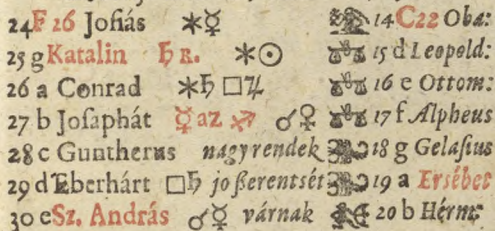 24 F 26 Joſiás ✶☿ 14 C 22 Oba:
25 g Katalin ♄ R. ✶☉ 15 d Leopold:
26 a Conrad ✶♄ □♃ 16 e Ottom:
27 b Joſaphát ☿ az ♐ ☌♀ 17 f Alpheus
28 c Guntherus nagy rendek 18 g Gelaſius
29 d Eberhárt □♄ jo ßerentsét 19 a Erſébet
30 e Sz. András ☌☿ várnak 20 b Hérm: